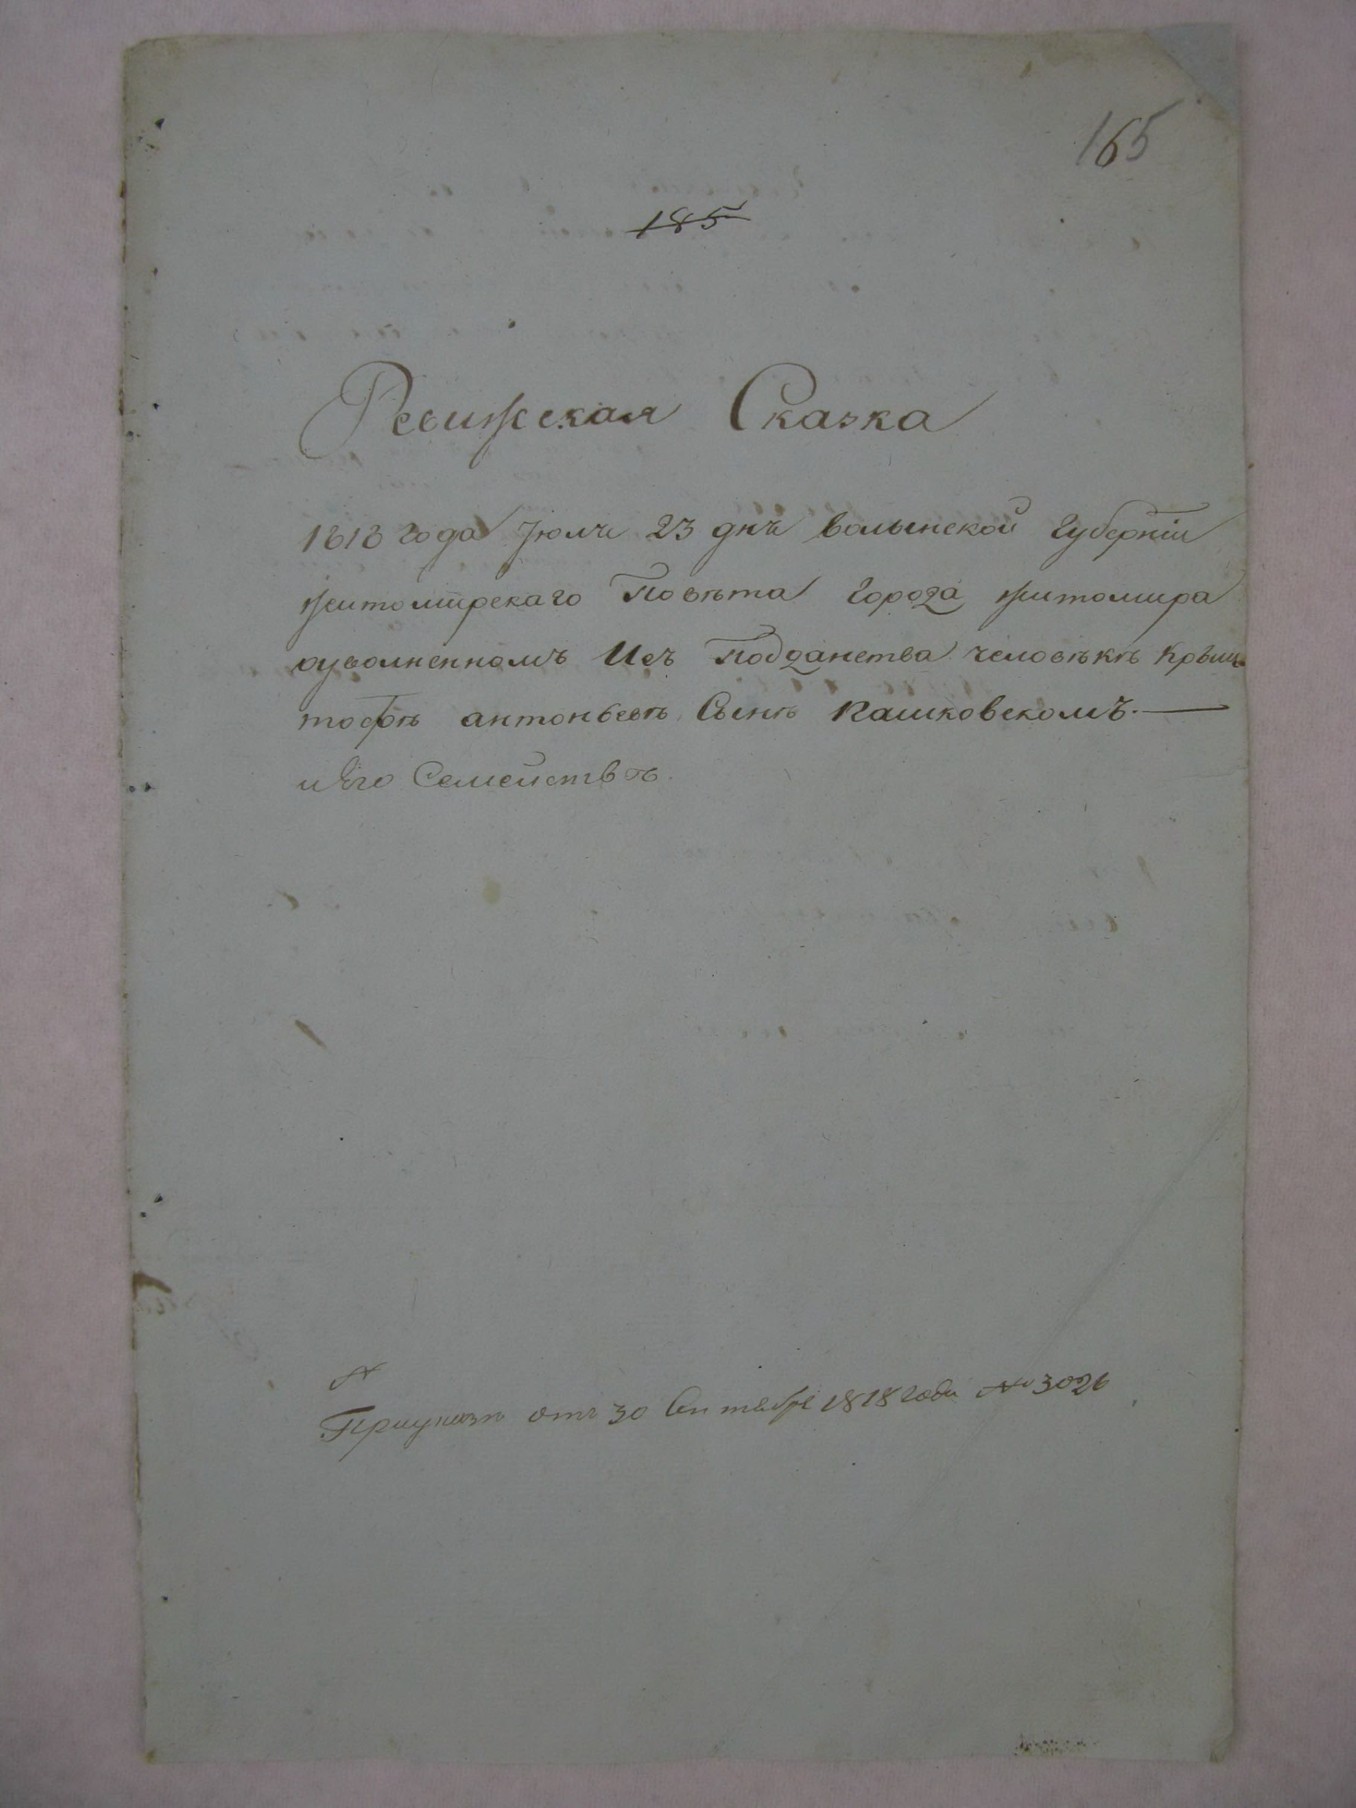 165
185
Ревижская Сказка
1818 года Іюля 23 дня волынской Губерніи
житомирскаго Повѣта города житомира
оуволненномъ Изъ Подданства человѣкѣ Крыш
тофѣ антоньевѣ Сынѣ Кашковскомъ.—
и Его Семействѣ.
№
Приуказѣ отъ 30 Сентября 1818 года № 3026